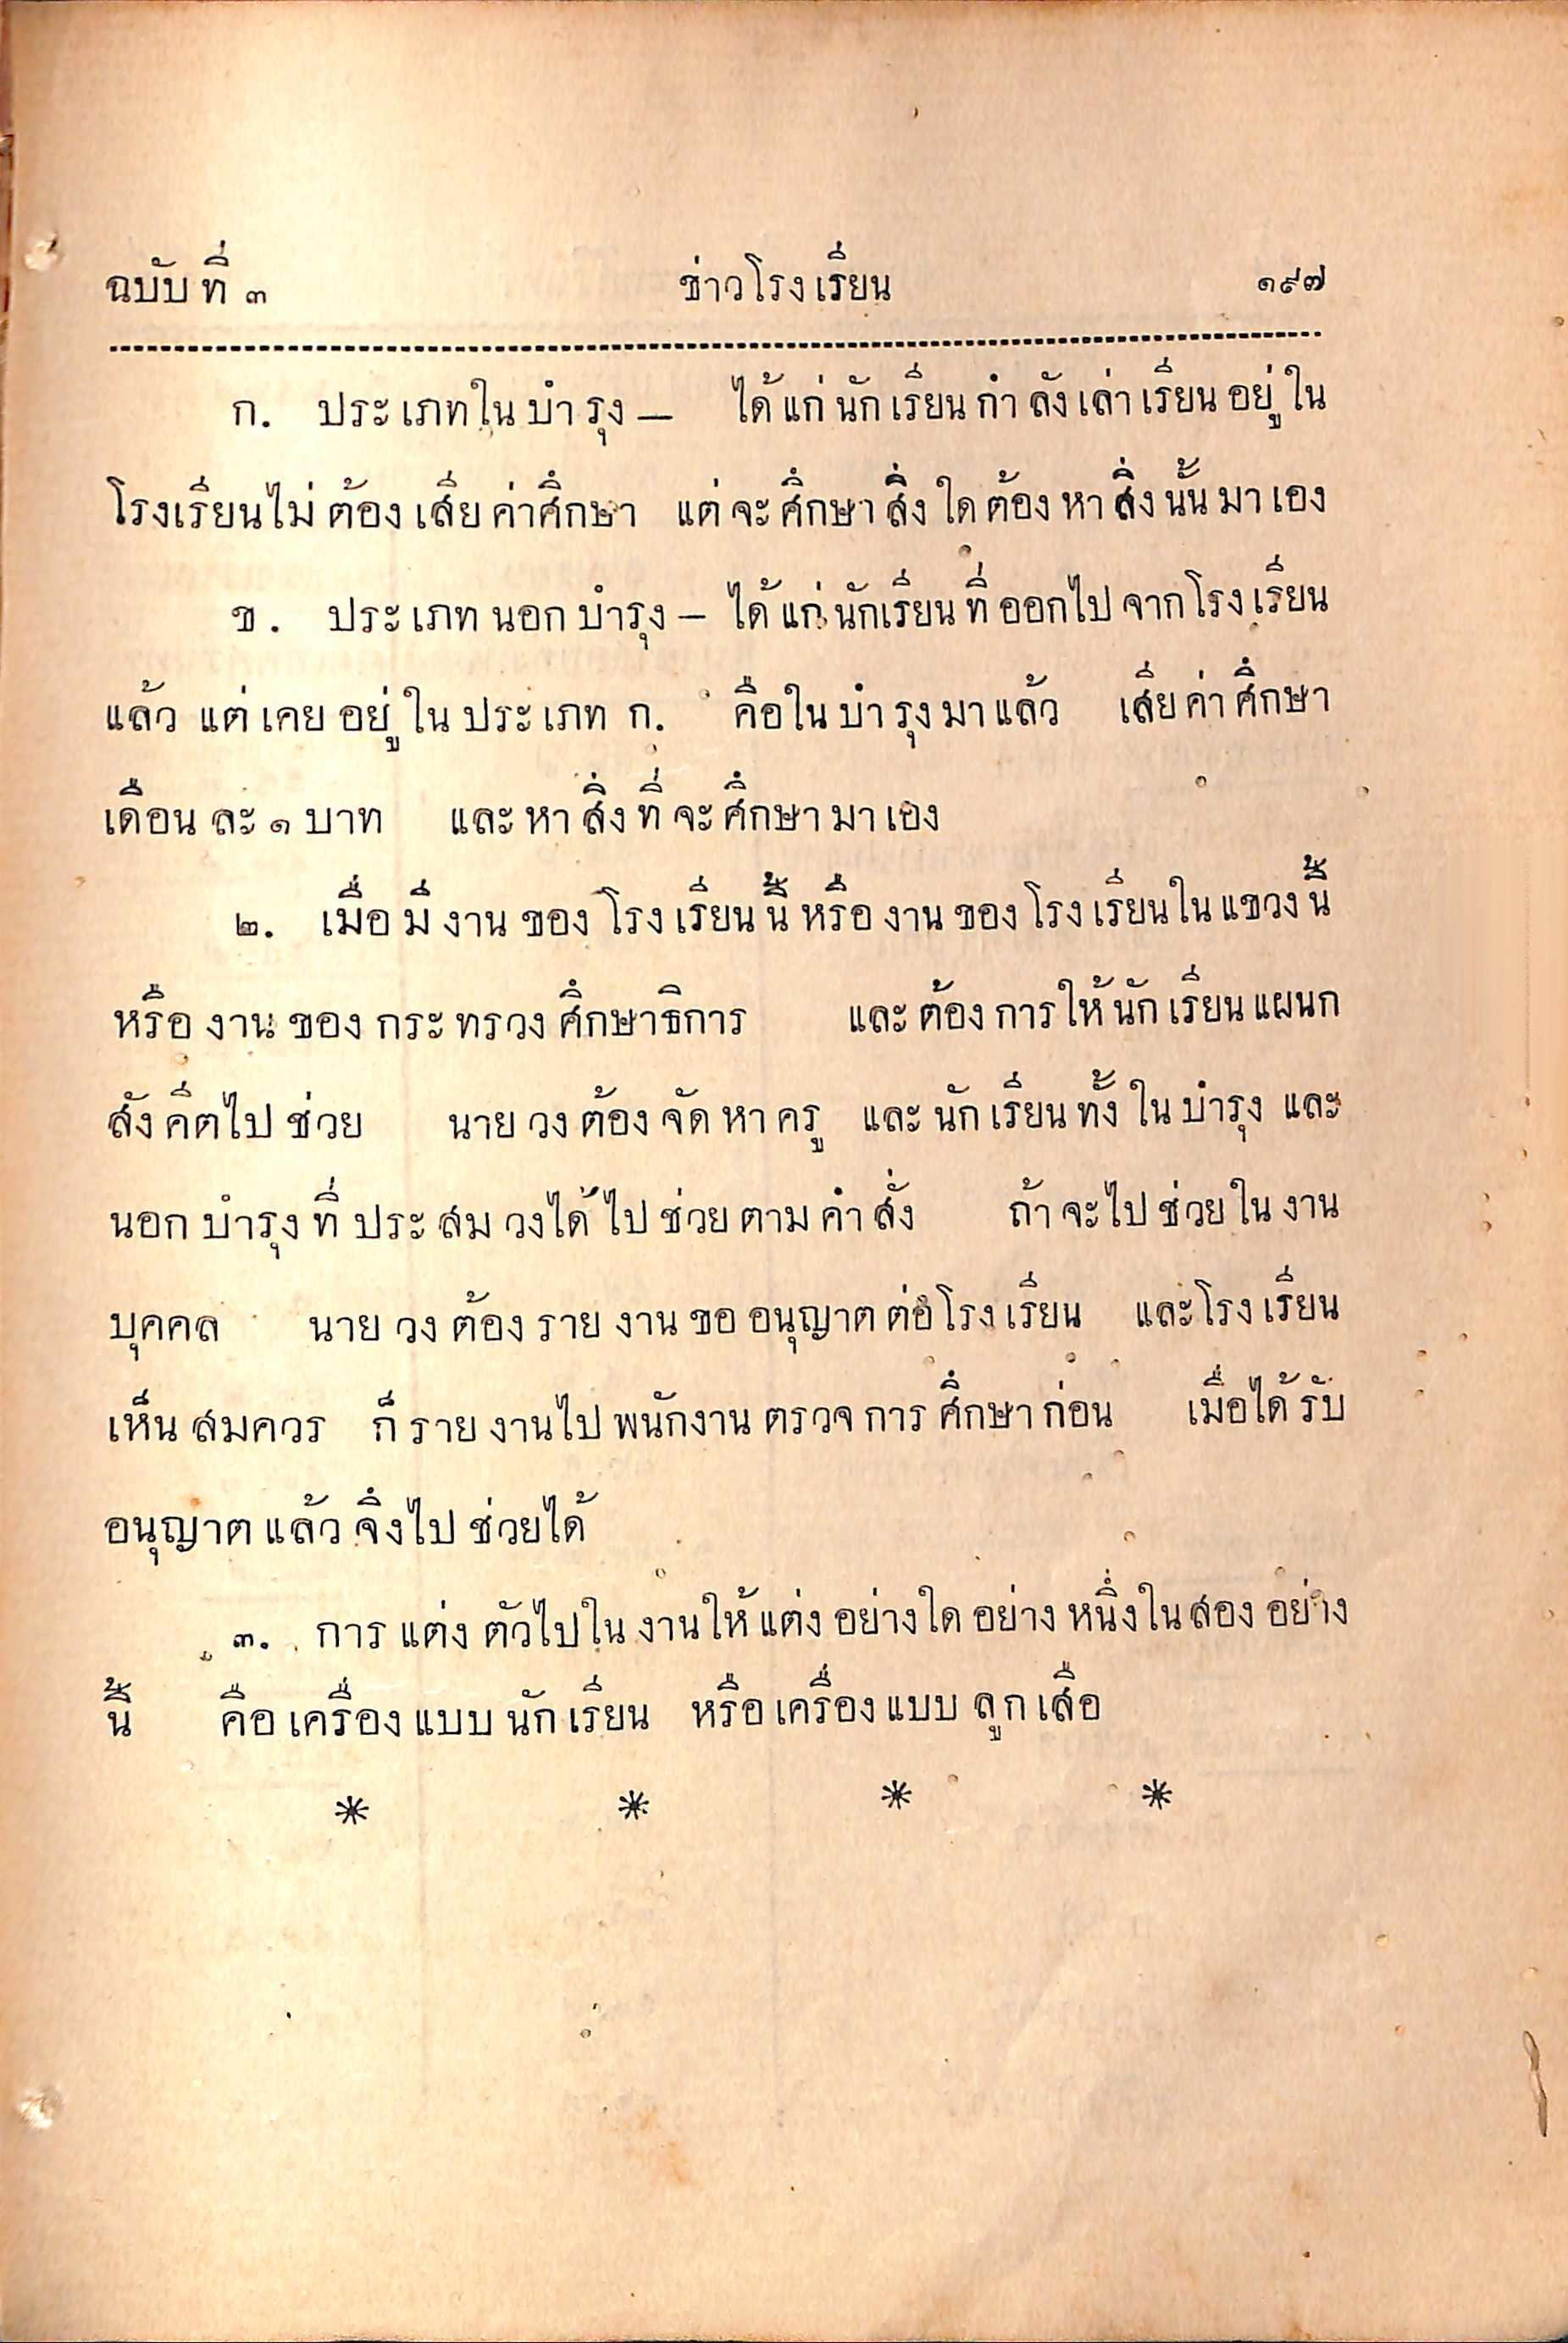 ฉบับที่ ๓ ข่าวโรงเรียน ๑๙๗
ก. ประเภทในบำรุง — ได้แก่นักเรียนกำลังเล่าเรียนอยู่ใน
โรงเรียนไม่ต้องเสียค่าศึกษา แต่จะศึกษาสิ่งใดต้องหาสิ่งนั้นมาเอง
ข. ประเภทนอกบำรุง — ได้แก่นักเรียนที่ออกไปจากโรงเรียน
แล้ว แต่เคยอยู่ในประเภท ก. คือในบำรุงมาแล้ว เสียค่าศึกษา
เดือนละ ๑ บาท และหาสิ่งที่จะศึกษามาเอง
๒. เมื่อมีงานของโรงเรียนนี้หรืองานของโรงเรียนในแขวงนี้
หรืองานของกระทรวงศึกษาธิการ และต้องการให้นักเรียนแผนก
สังคีตไปช่วย นายวงต้องจัดหาครู และนักเรียนทั้งในบำรุง และ
นอกบำรุงที่ประสมวงได้ไปช่วยตามคำสั่ง ถ้าจะไปช่วยในงาน
บุคคล นายวงต้องรายงานขออนุญาตต่อโรงเรียน และโรงเรียน
เห็นสมควร ก็รายงานไปพนักงานตรวจการศึกษาก่อน เมื่อได้รับ
อนุญาตแล้วจึงไปช่วยได้
๓. การแต่งตัวไปในงานให้แต่งอย่างใดอย่างหนึ่งในสองอย่าง
นี้ คือเครื่องแบบนักเรียน หรือเครื่องแบบลูกเสือ
* * * *